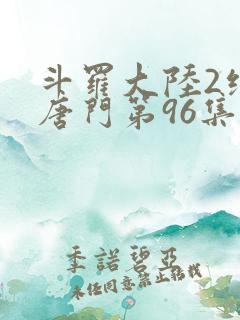 斗羅大陸2絕
唐門第96集
季諾碧亞
未任同意禁止轉載